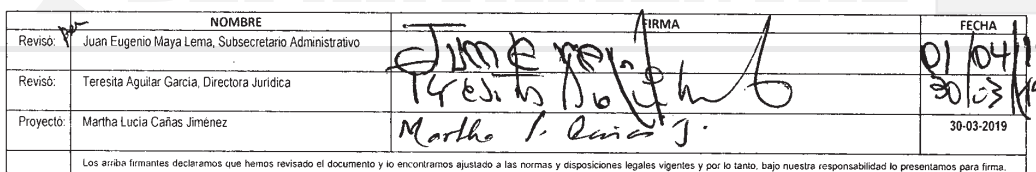 NOMBRE FIRMA FECHA
Revisó: Juan Eugenio Maya Lema, Subsecretario Administrativo 01/04/
Revisó: Teresita Aguilar Garcia, Directora Jurídica Teresita Aguilar 30/03/
Proyectó: Martha Lucia Cañas Jiménez Martha L. Cañas J. 30-03-2019
Los arriba firmantes declaramos que hemos revisado el documento y lo encontramos ajustado a las normas y disposiciones legales vigentes y por lo tanto, bajo nuestra responsabilidad lo presentamos para firma.